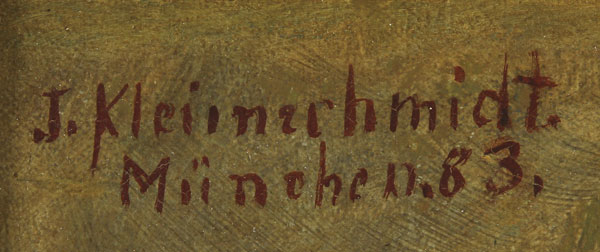 J. Kleinschmidt.
München.83.